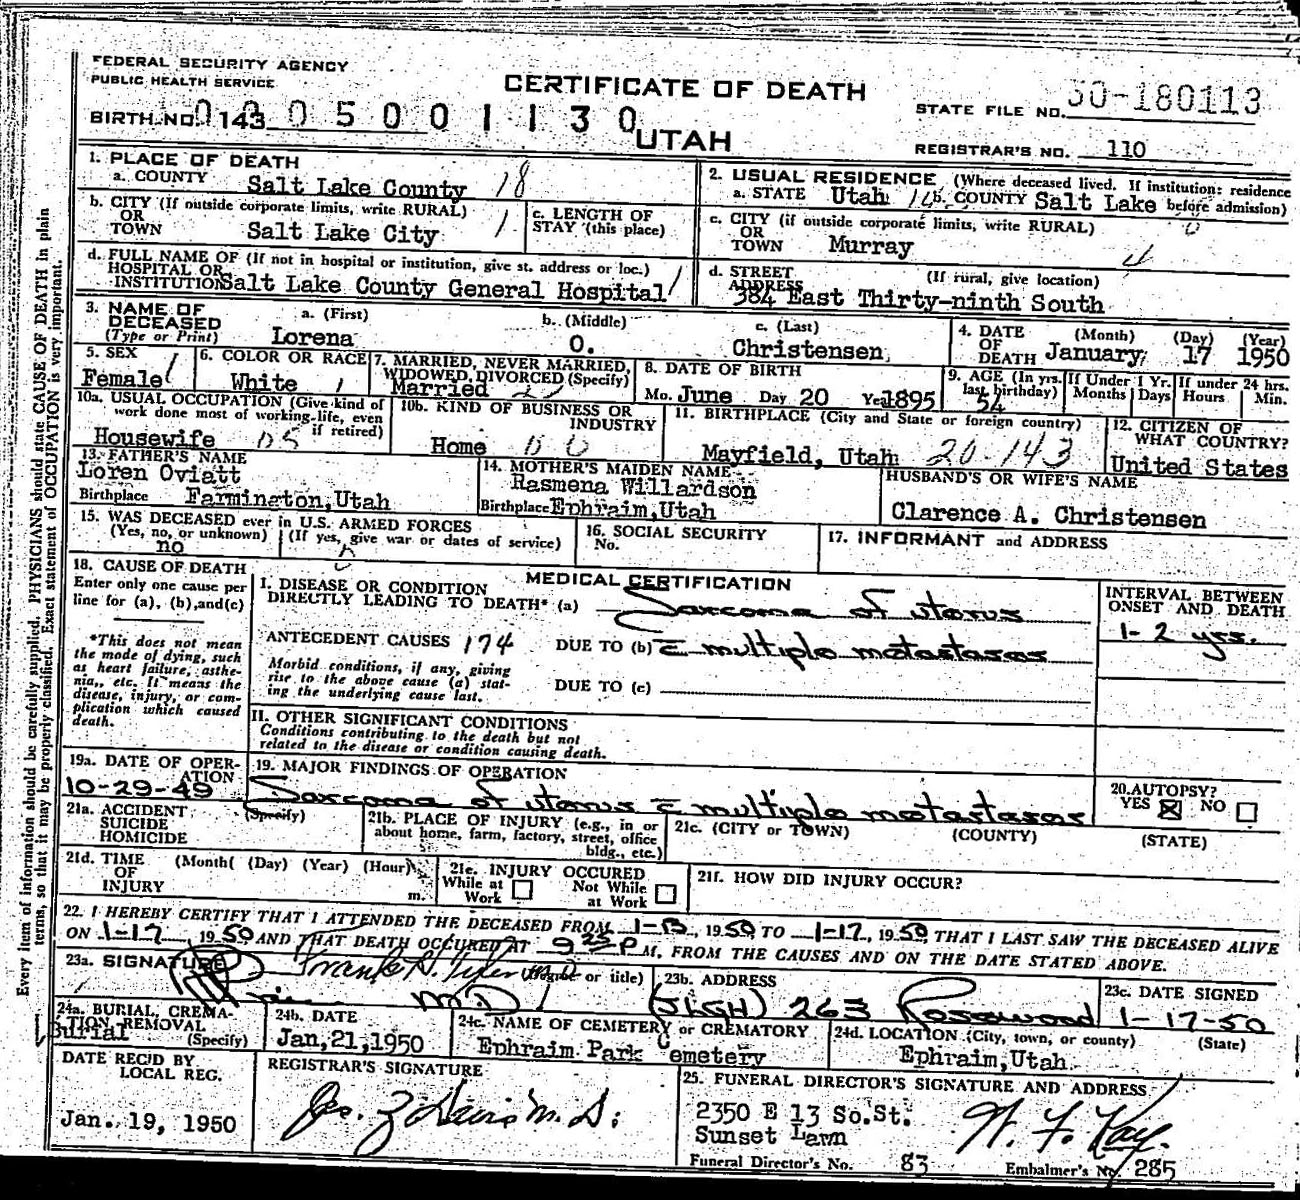 FEDERAL SECURITY AGENCY
PUBLIC HEALTH SERVICE
CERTIFICATE OF DEATH
STATE FILE NO. 50-180113
BIRTH NO. 143 0 0 0 5 0 0 1 1 3 0
UTAH
REGISTRAR'S NO. 110
1. PLACE OF DEATH
a. COUNTY Salt Lake County 18
2. USUAL RESIDENCE (Where deceased lived. If institution: residence before admission)
a. STATE Utah b. COUNTY Salt Lake
b. CITY (If outside corporate limits, write RURAL)
OR
TOWN Salt Lake City 1
c. LENGTH OF
STAY (this place)
c. CITY (if outside corporate limits, write RURAL)
OR
TOWN Murray 4
d. FULL NAME OF (If not in hospital or institution, give st. address or loc.)
HOSPITAL OR
INSTITUTION Salt Lake County General Hospital
d. STREET (If rural, give location)
ADDRESS
384 East Thirty-ninth South
3. NAME OF
DECEASED
(Type or Print)
a. (First)
Lorena
b. (Middle)
O.
c. (Last)
Christensen
4. DATE
OF
DEATH
(Month) (Day) (Year)
January 17 1950
5. SEX
Female 1
6. COLOR OR RACE
White 1
7. MARRIED, NEVER MARRIED,
WIDOWED, DIVORCED (Specify)
Married
8. DATE OF BIRTH
Mo. June Day 20 Year 1895
9. AGE (In yrs.
last birthday)
54
If Under 1 Yr.
Months Days
If under 24 hrs.
Hours Min.
10a. USUAL OCCUPATION (Give kind of
work done most of working life, even
if retired)
Housewife
10b. KIND OF BUSINESS OR
INDUSTRY
Home
11. BIRTHPLACE (City and State or foreign country)
Mayfield, Utah 20-143
12. CITIZEN OF
WHAT COUNTRY?
United States
13. FATHER'S NAME
Loren Oviatt
Birthplace Farmington, Utah
14. MOTHER'S MAIDEN NAME
Rasmena Willardson
Birthplace Ephraim, Utah
HUSBAND'S OR WIFE'S NAME
Clarence A. Christensen
15. WAS DECEASED ever in U.S. ARMED FORCES
(Yes, no, or unknown) (If yes, give war or dates of service)
no
16. SOCIAL SECURITY
No.
17. INFORMANT and ADDRESS
18. CAUSE OF DEATH
Enter only one cause per
line for (a), (b), and (c)
*This does not mean
the mode of dying, such
as heart failure, asthe-
nia, etc. It means the
disease, injury, or com-
plication which caused
death.
MEDICAL CERTIFICATION
I. DISEASE OR CONDITION
DIRECTLY LEADING TO DEATH* (a) Sarcoma of uterus
ANTECEDENT CAUSES 174 DUE TO (b) c̄ multiple metastases
Morbid conditions, if any, giving
rise to the above cause (a) stat-
ing the underlying cause last.
DUE TO (c)
INTERVAL BETWEEN
ONSET AND DEATH
1-2 yrs.
II. OTHER SIGNIFICANT CONDITIONS
Conditions contributing to the death but not
related to the disease or condition causing death.
19a. DATE OF OPER-
ATION
10-29-49
19. MAJOR FINDINGS OF OPERATION
Sarcoma of uterus c̄ multiple metastases
20. AUTOPSY?
YES ☒ NO ☐
21a. ACCIDENT
SUICIDE
HOMICIDE
(Specify)
21b. PLACE OF INJURY (e.g., in or
about home, farm, factory, street, office
bldg., etc.)
21c. (CITY or TOWN) (COUNTY) (STATE)
21d. TIME
OF
INJURY
(Month( (Day) (Year) (Hour)
m.
21e. INJURY OCCURED
While at
Work ☐
Not While
at Work ☐
21f. HOW DID INJURY OCCUR?
22. I HEREBY CERTIFY THAT I ATTENDED THE DECEASED FROM 1-13, 1950, TO 1-17, 1950 THAT I LAST SAW THE DECEASED ALIVE
ON 1-17, 1950 AND THAT DEATH OCCURED AT 9 25 P M, FROM THE CAUSES AND ON THE DATE STATED ABOVE.
23a. SIGNATURE Frank H. Tyler M.D. (Degree or title)
MD
23b. ADDRESS
(SLGH) 263 Rosewood
23c. DATE SIGNED
1-17-50
24a. BURIAL, CREMA-
TION, REMOVAL
(Specify)
Burial
24b. DATE
Jan, 21, 1950
24c. NAME OF CEMETERY or CREMATORY
Ephraim Park Cemetery
24d. LOCATION (City, town, or county) (State)
Ephraim, Utah
DATE REC'D BY
LOCAL REG.
Jan. 19, 1950
REGISTRAR'S SIGNATURE
25. FUNERAL DIRECTOR'S SIGNATURE AND ADDRESS
2350 E 13 So. St.
Sunset Lawn
Funeral Director's No. 83
Embalmer's No. 285
Every item of information should be carefully supplied. PHYSICIANS should state CAUSE OF DEATH in plain
terms, so that it may be properly classified. Exact statement of OCCUPATION is very important.